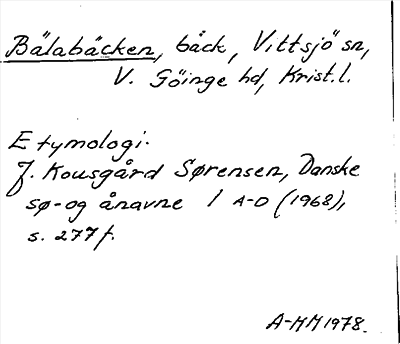 Bälabäcken, bäck, Vittsjö sn,
V. Göinge hd, Krist.l.
Etymologi.
J. Kousgård Sørensen, Danske
sø- og ånavne 1 A-D (1968),
s. 277 f.
A-MH 1978.